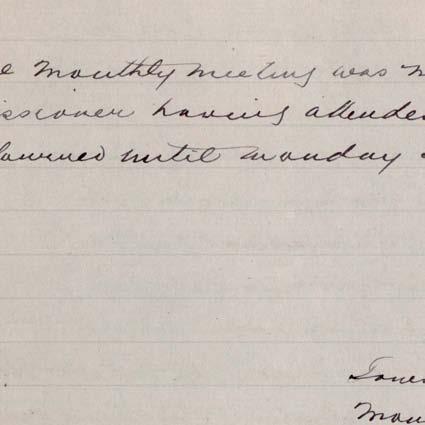 e Monthly meeting was
issioner having attende
journed until monday